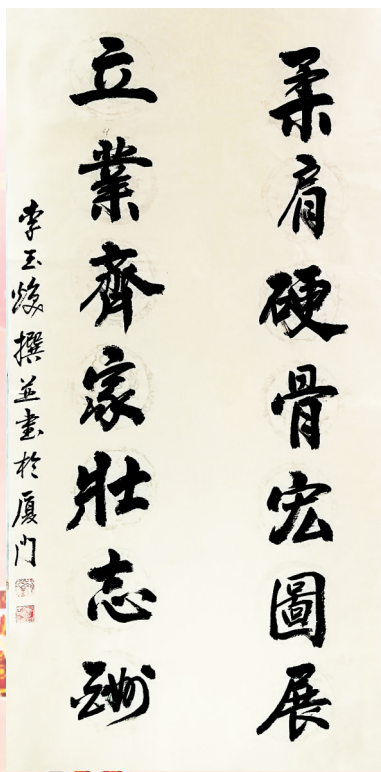 柔肩硬骨宏圖展
立業齊家壯志酬
李玉燦撰並書於厦门